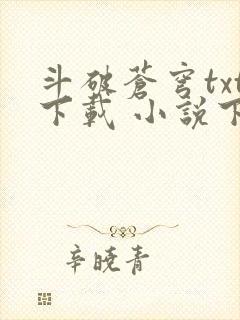 斗破蒼穹txt
下載 小說下
辛曉青